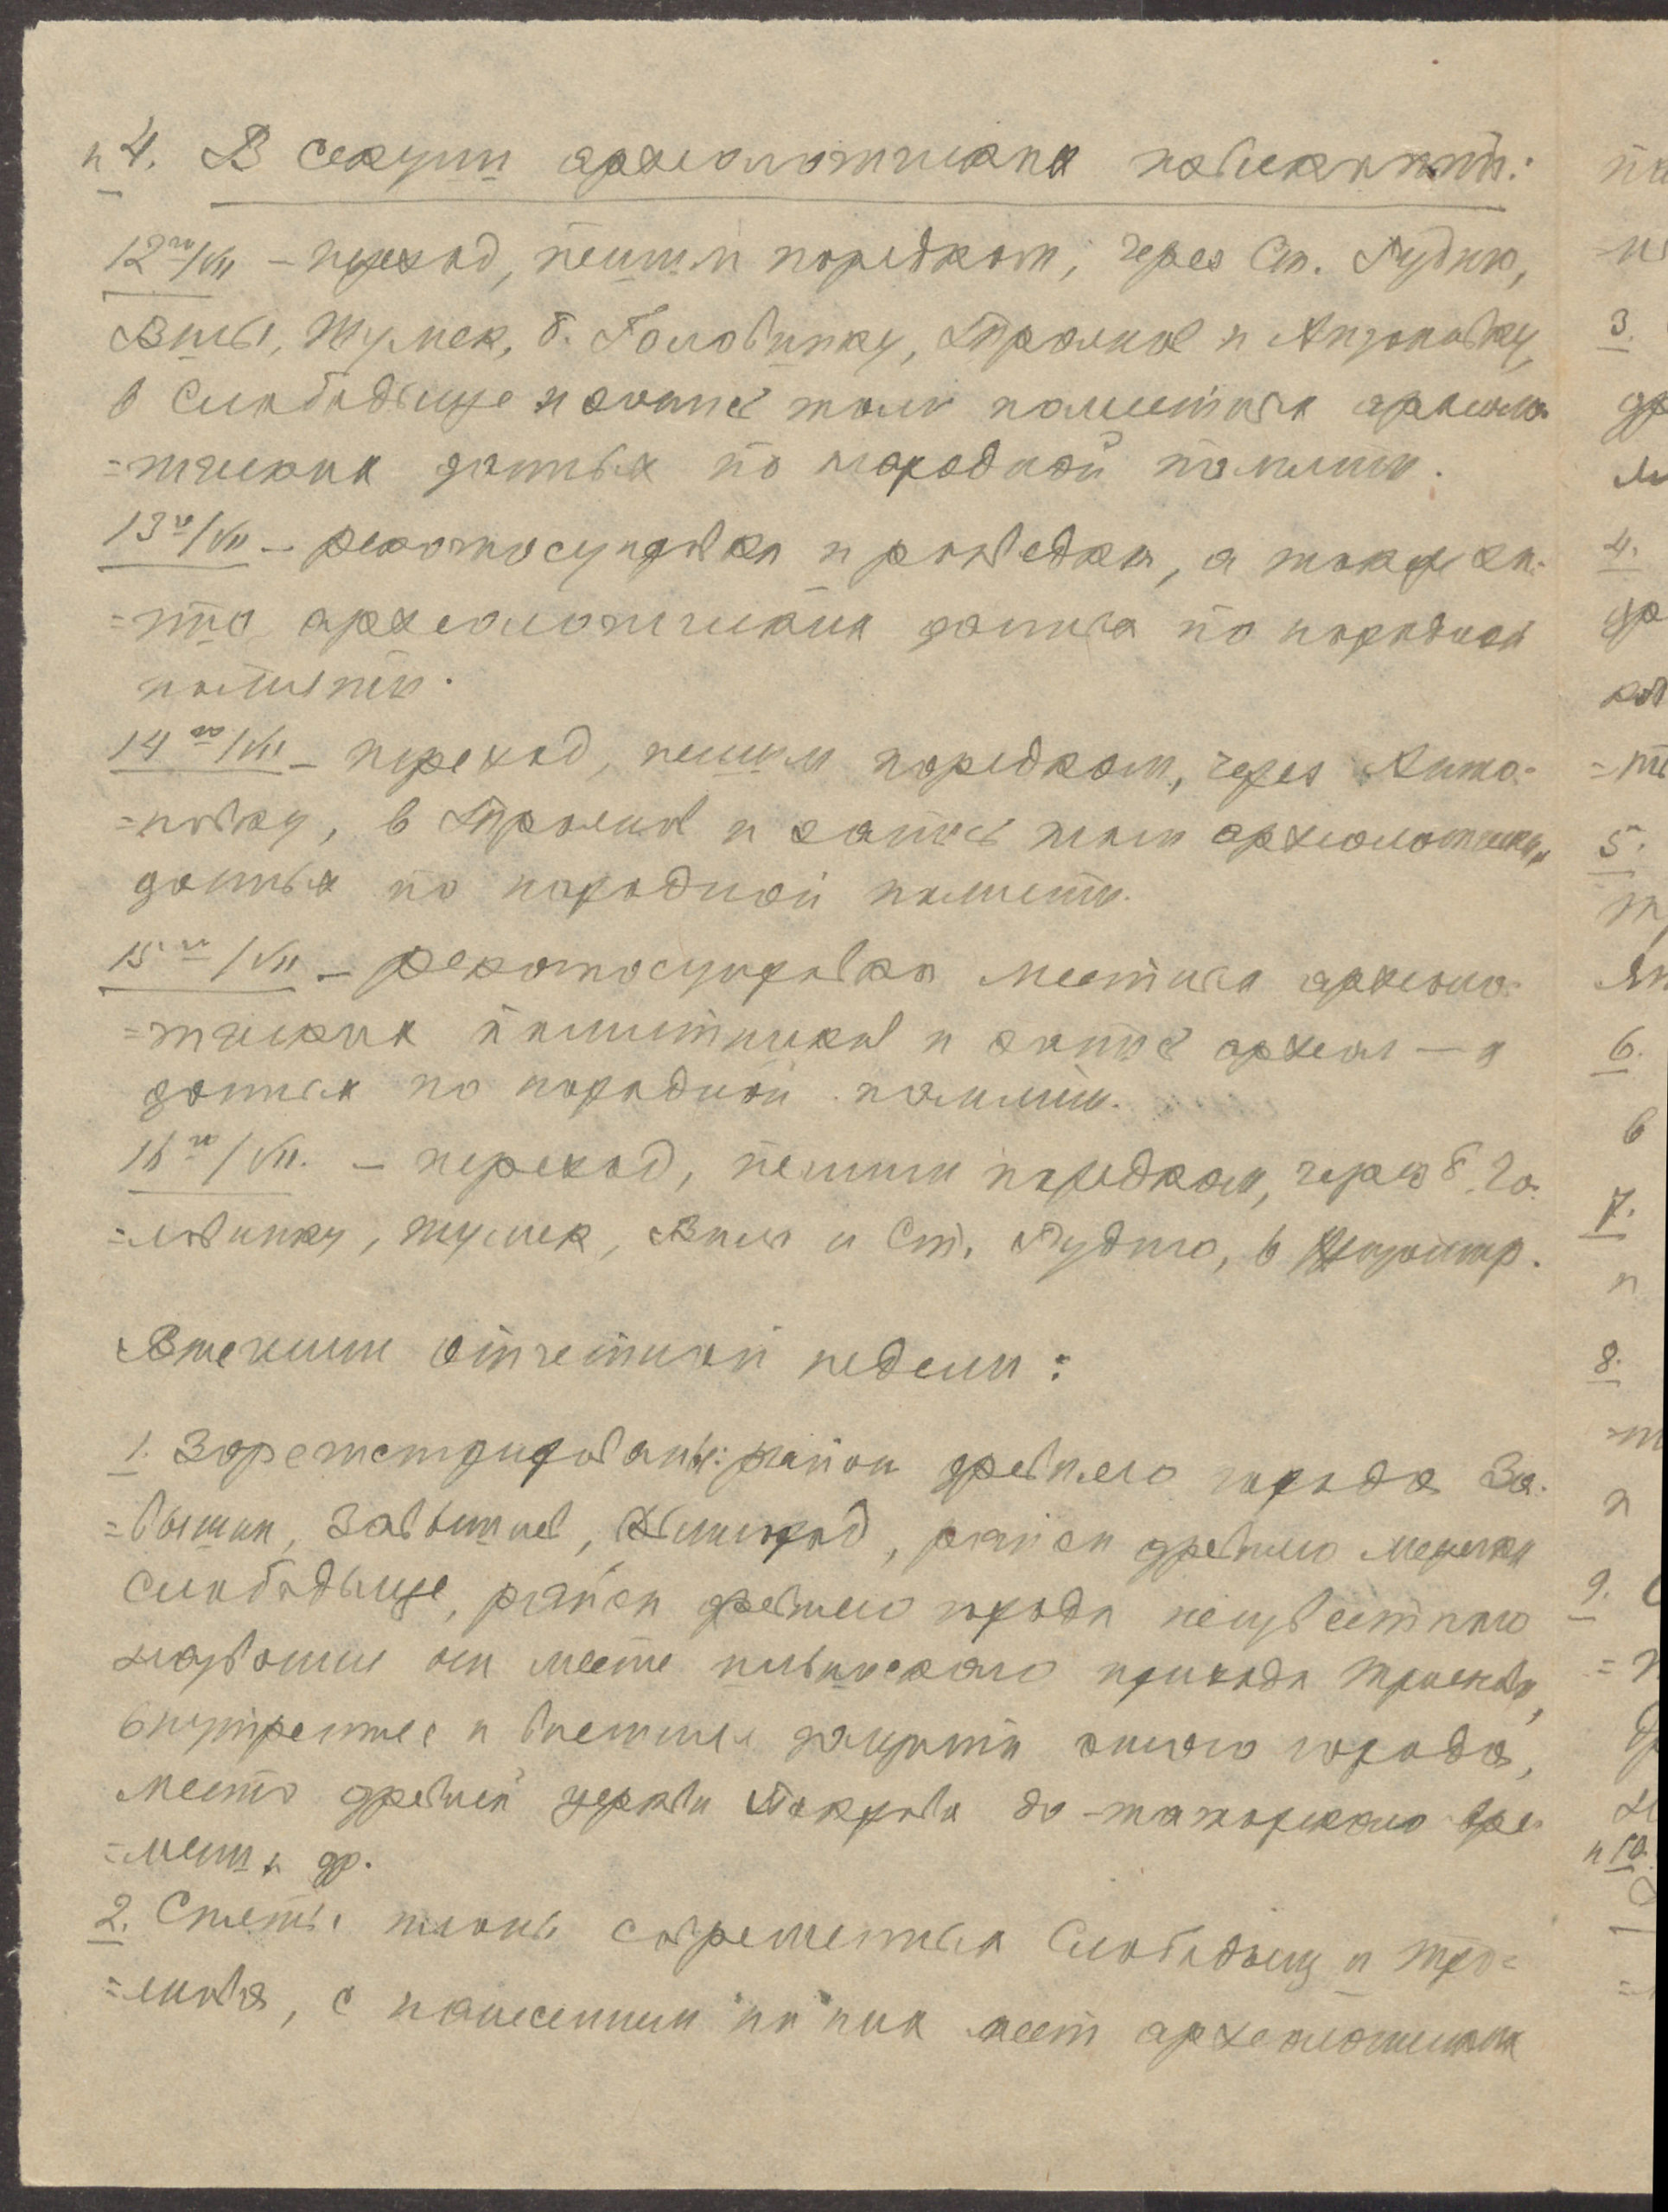 и 4. В секции археологических изысканий:
12го/VII – переход, пешим порядком, через Ст. Рудню,
Вилы, Тулиск, б. Головинку, Троянов и Антоновку,
в Слободыще и запись там памятных археоло-
=гических данных по народной памяти.
13го/VII – рекогносцировка и разведка, а также за-
=пись археологических данных по народной
памяти.
14го/VII – переход, пешим порядком, через Анто-
=новку, в Троянов и запись там археологических
данных по народной памяти.
15го/VII – рекогносцировка местных археоло-
=гических памятников и запись археол – х
данных по народной памяти.
16го/VII. – переход, пешим порядком, через б. Го-
=ловинку, Тулиск, Вилы и Ст. Рудню, в
В течении отчетной недели:
1. Зарегистрированы: район древнего города За-
район древнего местечка
Слободыще, район древнего города неизвестного
названия на месте нынешнего прихода Троянова,
внутренние и внешние защиты этого города,
место древней церкви Покрова до-татарского вре-
=мени и др.
2. Сняты планы современных Слободыщ и Тро-
=янова, с нанесением на них мест археологических